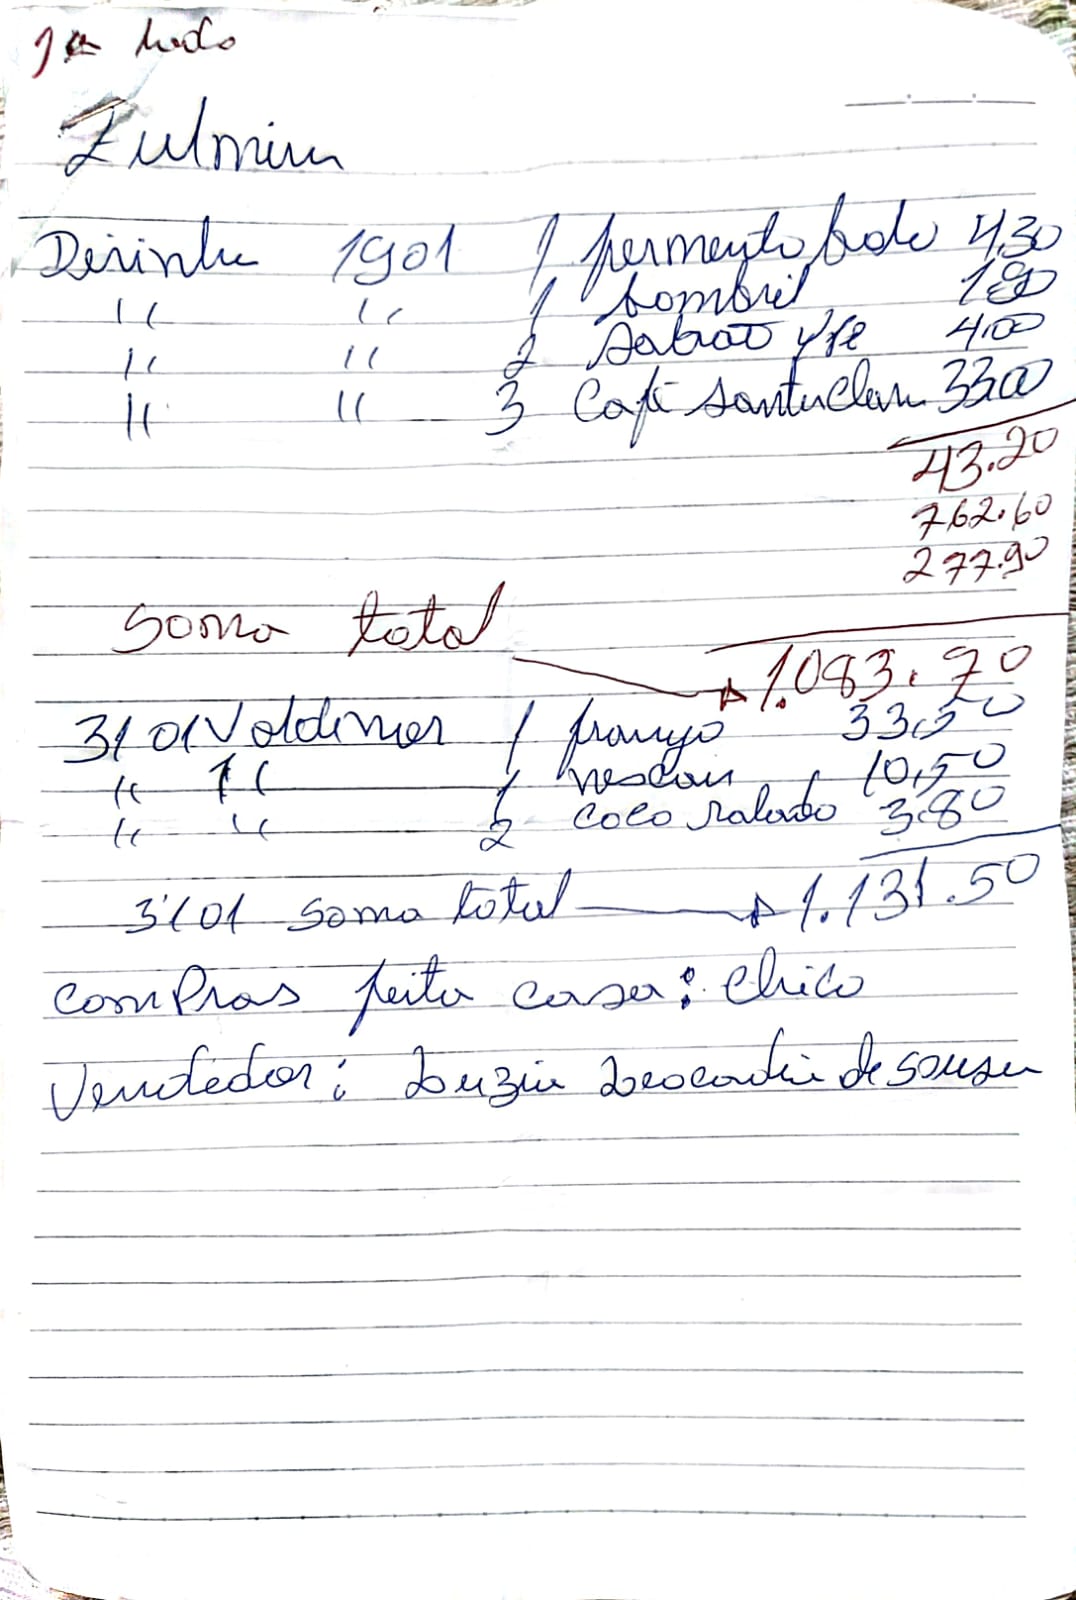 1a lado
Zulmira
Derinha 1901 1 fermento bolo 4,30
" " 1 bombril 1,90
" " 2 Sabão ype 4,00
" " 3 Café santa Clara 33,00
43.20
762.60
277.90
Soma total
1.083.70
31 01 Valdimar 1 frango 33,50
" " 1 nescau 10,50
" " 2 coco ralado 3,80
31 01 soma total 1.131.50
comPras feita casa: Chico
Vendedor: Luzia Leocadia de sousa